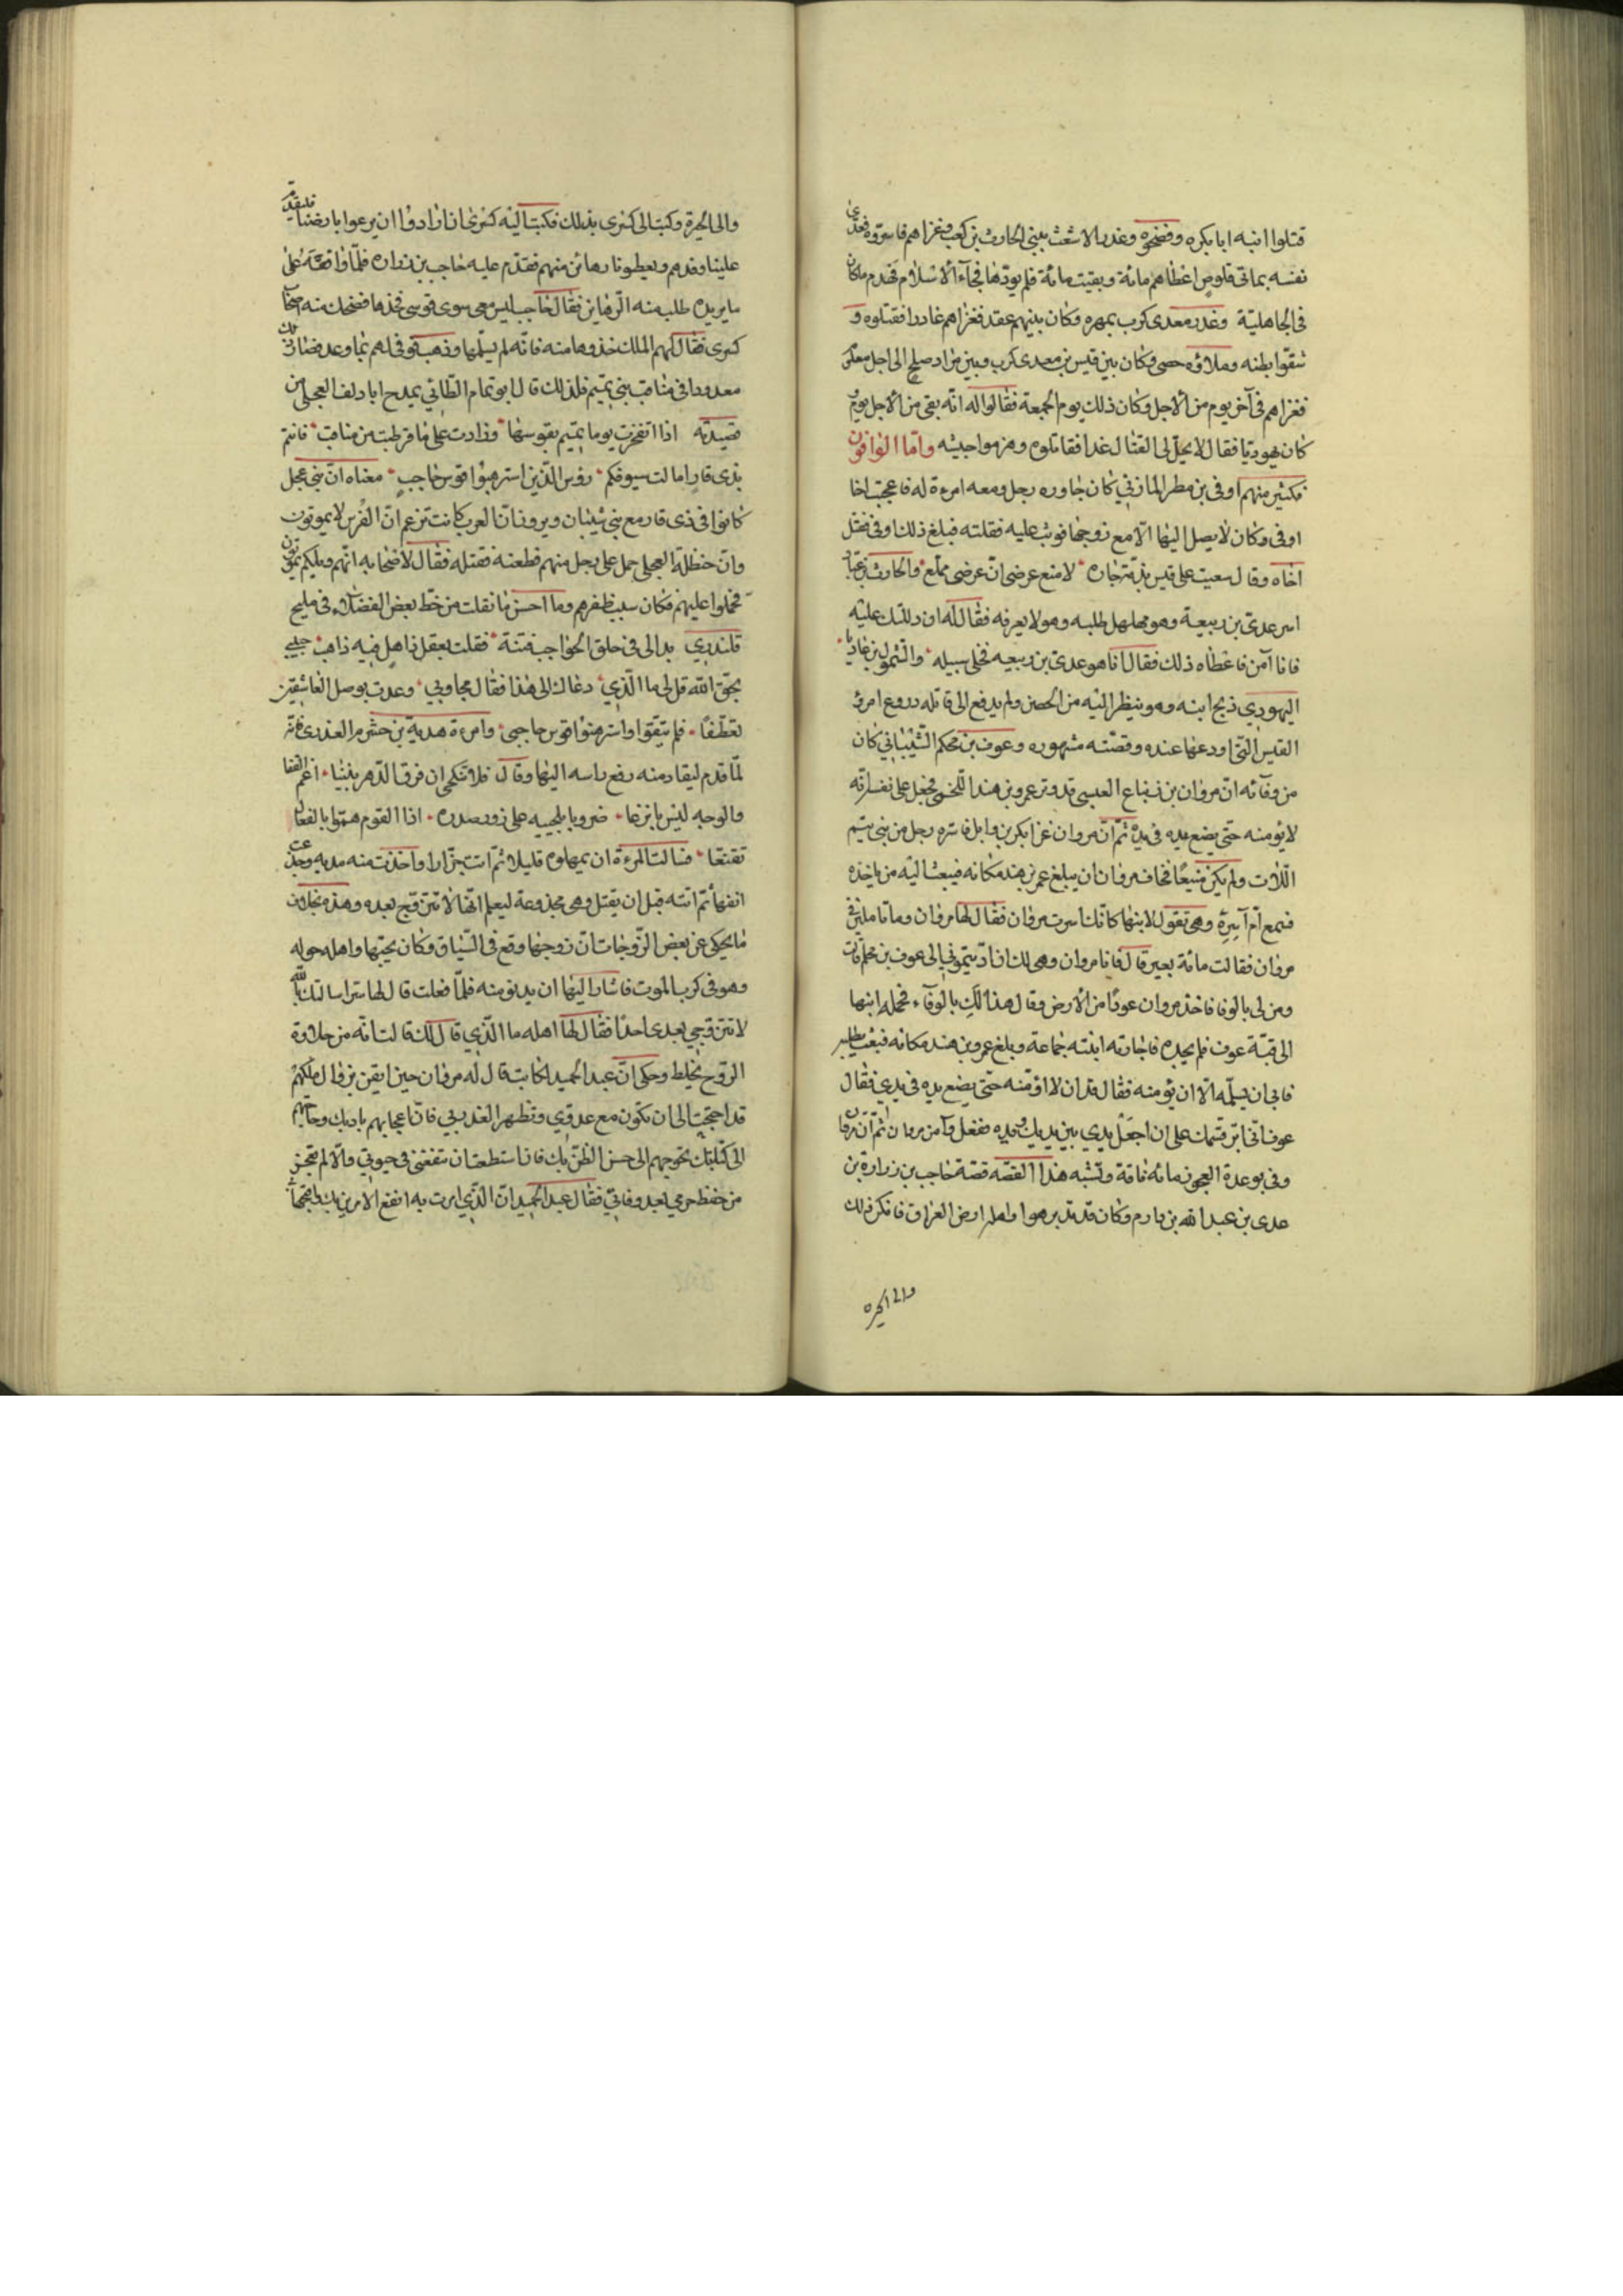 قتلوا ابنه ابا بكره وفضخوه وغدر الاشعث ببنى الحارث بن كعب غزاهم فاسروه ففدى
نفسه بمائتى قلوص اعطاهم مائة وبقيت مائة فلم يودها فجاء الاسلام فهدم ماكان
فى الجاهلية وغدر معدى كرب بمهره وكان بينهم عقد فغزاهم غادرا فقتلوه و
شقوا بطنه وملاؤه حصى وكان بين قيس بن معدى كرب وبين مراد صلح الى اجل معلوم
فغزاهم فى آخر يوم من الاجل وكان ذلك يوم الجمعة فقالوا له انه بقى من الاجل يوم
كان يهوديا فقال لا يحل لى القتال غدا فقاتلوه وهزموا جيشه واما الوافون
فكثير منهم اوفى بن مطر المازنى كان جاوره رجل ومعه امرءة له فاعجبت اخا
اوفى وكان لا يصل اليها الا مع زوجها فوثب عليه فقتله فبلغ ذلك اوفى فقتل
اخاه وقال سعيت على قيس بذمة جاره لامنع عرضى ان عرضى ممنع والحارث بن عباد
اسر عدى بن ربيعة وهو مهلهل طلبه وهو لا يعرفه فقال له ان دللتك عليه
فانا آمن فاعطاه ذلك فقال انا هو عدى بن ربيعه فخلى سبيله والسمول بن عاديا
اليهودي ذبح ابنه وهو ينظر اليه من الحصن ولم يدفع الى قاتله دروع امرؤ
القيس التى اودعها عنده وقصته مشهوره وعوف بن محكم الشيبانى كان
من وفآئه ان مروان بن زنباع العبسى قد وتر عمرو بن هند اللخمى فجعل على نفسه انه
لا يؤمنه حتى يضع يده فى يده ثم ان مروان غزا بكر بن وايل فاسره رجل من بنى تيم
اللات ولم يكن منيعا فخاف مروان ان يبلغ عمر بن هند مكانه فيبعث اليه من ياخذه
فسمع ام آسره وهى تقول لابنها كانك اسرت مروان فقال لها مروان وما تاملين فى
مروان فقالت مائة بعير قال فانا مروان وهى لك ان اديتمونى الى عوف بن محلم قالت
ومن لى بالوفا فاخذ مروان عودا من الارض وقال هذا لك بالوفاء فحمله ابنها
الى قبة عوف فلم يجده فاجارته ابنته جماعة وبلغ عمرو بن هند مكانه فبعث يطلبه
فابى ان يسلمه الا ان يؤمنه فقال قد ان لا اؤمنه حتى يضع يده فى يدي فقال
عوف انى ابر قسمك على ان اجعل يدي بين يديك ويده ففعل وآمن مروان ثم ان مروان
وفى بوعدة العجوز مائه ناقة وتشبه هذا القصه قصة حاجب بن زرارة بن
عدى بن عبد الله بن دارم وكان قد تدبر هو واهله ارض العراق فانكر ذلك
والى الحيره
والى الحيرة وكتب الى كسرى بذلك فكتب اليه كسرى ان ارادوا ان يرعوا بارضنا فليقدم
علينا وفدهم ويعطونا رهائن منهم فقدم عليه حاجب بن زراره فلما واقعه على
ما يريده طلب منه الرهاين فقال حاجب ليس معى سوى قوسى فخذها فضحك منه اصحاب
كسرى فقال لهم الملك خذوها منه فانه لم يسلمها وذهب ووفى لهم بما وعد فصار ذلك
معدودا فى مناقب بنى تميم فلذلك قال ابو تمام الطائي يمدح ابا دلف العجلى من
قصيدته اذا افتخرت يوما تميم بقوسها وزادت على ما وطدت من مناقب فانتم
بذى قار امالت سيوفكم رؤس الذين استرهنوا قوس حاجب معناه ان بنى عجل
كانوا فى ذى قار مع بنى شيبان ويرون ان العرب كانت تزعم ان الفرس لا يموتون
وان حنظلة العجلى حمل على رجل منهم فطعنه فقتله فقال لاصحابه انهم ويلكم يموتون
فحملوا عليهم فكان سبب ظفرهم وما احسن ما نقلت من خط بعض الفضلاء فى مليح
قلندري بدا لى فى حلق الحواجب فتنة فقلت بعقل ذاهل فيه ذاهب حبيبي
بحق الله قل لى ما الذي دعاك الى هذا فقال مجاوبى وعدت بوصل العاشقين
تعطفا فلم يثقوا واسترهنوا قوس حاجبى وامرءة هدبة بن خشرم العذرى فانه
لما قدم ليقاد منه رفع راسه اليها وقال فلا تنكحى ان فرق الدهر بيننا اغم القفا
والوجه ليس بانزعا ضروبا بلحييه على زور صدره اذا القوم هموا بالفعال
تقنعا فسالت المرءة ان يمهلوه قليلا ثم اتت جزارا واخذت منه مديه وجدعت
انفها ثم اتته قبل ان يقتل وهى مجدوعة ليعلم انها لا تتزوج بعده وهذه بخلاف
ما يحكى عن بعض الزوجات ان زوجها وقع فى السياق وكان يحبها واهله حوله
وهو فى كرب الموت فاشار اليها ان يدنو منه فلما فعلت قال لها سرا سالتك بالله
لا تتزوجي بعدى احدا فقال لها اهله ما الذي قال لك قالت انه من حلاوة
الروح يخلط وحكى ان عبد الحميد الكاتب قال له مروان حين ايقن بزوال ملكهم
قد احتجت الى ان تكون مع عدوي وتظهر الغدر بي فان اعجابهم بادبك وحاجتهم
الى كتابتك تحوجهم الى حسن الظن بك فان استطعت ان تنفعنى فى حيوتي والا لم تعجز
من حفظ حرمي بعد وفاتي فقال عبد الحميد ان الذي امرت به انفع الامرين بك واقبحهما